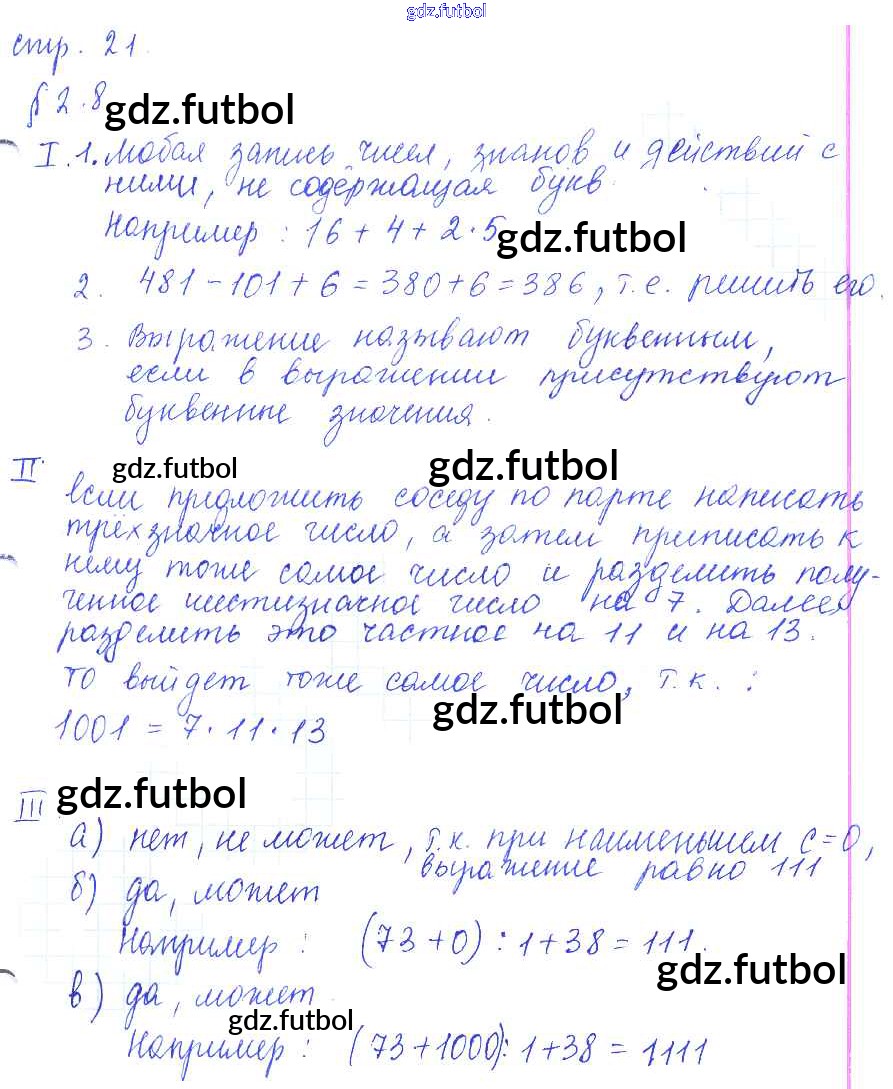 gdz.futbol
стр. 21.
§ 2.8 gdz.futbol
I. 1. Любая запись чисел, знаков и действий с
ними, не содержащая букв.
Например: 16 + 4 + 2 · 5 gdz.futbol
2. 481 - 101 + 6 = 380 + 6 = 386, т.е. решить его.
3. Выражение называют буквенным,
если в выражении присутствуют
буквенные значения.
II gdz.futbol gdz.futbol
Если предложить соседу по парте написать
трёхзначное число, а затем приписать к
нему тоже самое число и разделить полу-
ченное шестизначное число на 7. Далее,
разделить это частное на 11 и на 13.
То выйдет тоже самое число, т.к. :
gdz.futbol
1001 = 7 · 11 · 13
III gdz.futbol
а) нет, не может, т.к. при наименьшем c = 0,
выражение равно 111
б) да, может
Например: (73 + 0) : 1 + 38 = 111.
gdz.futbol
в) да, может
gdz.futbol
Например: (73 + 1000) : 1 + 38 = 1111